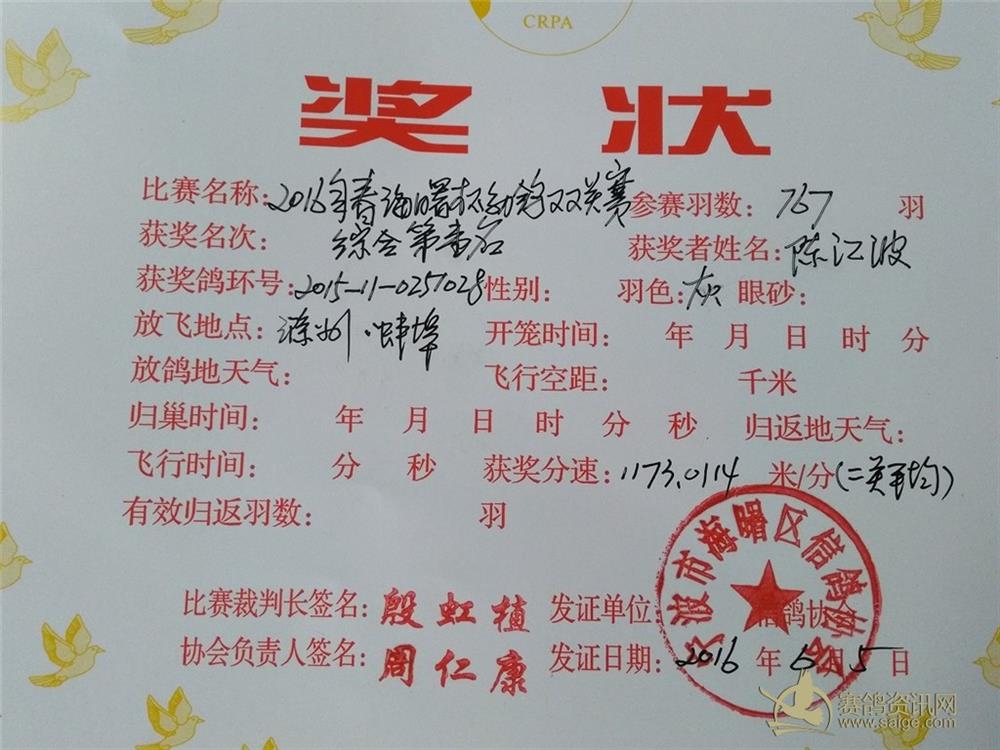 CRPA
奖 状
比赛名称：2016年春海曙杯幼鸽双关赛 参赛羽数：767 羽
获奖名次：综合第壹名 获奖者姓名：陈江波
获奖鸽环号：2015-11-0257028 性别： 羽色：灰 眼砂：
放飞地点：滁州·蚌埠 开笼时间： 年 月 日 时 分
放鸽地天气： 飞行空距： 千米
归巢时间： 年 月 日 时 分 秒 归返地天气：
飞行时间： 分 秒 获奖分速：1173.0114 米/分(二关平均)
有效归返羽数： 羽
比赛裁判长签名：殷虹植 发证单位： 信鸽协会
协会负责人签名：周仁康 发证日期：2016 年 6 月 5 日
宁波市海曙区信鸽协会
赛鸽资讯网
www.saige.com